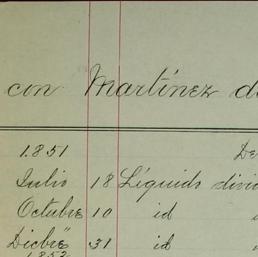 con Martínez de
1851 De
Julio 18 Líquido divi
Octubre 10 id
Dicbre" 31 id
1852